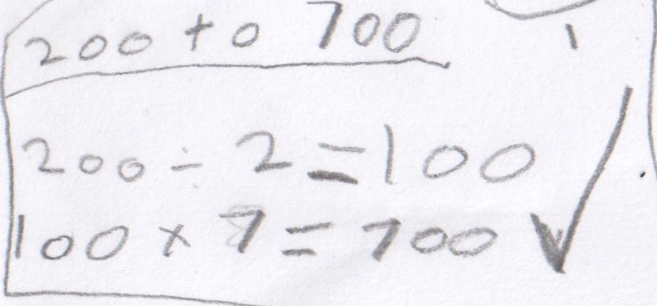 200 to 700
200 ÷ 2 = 100
100 × 7 = 700 ✓